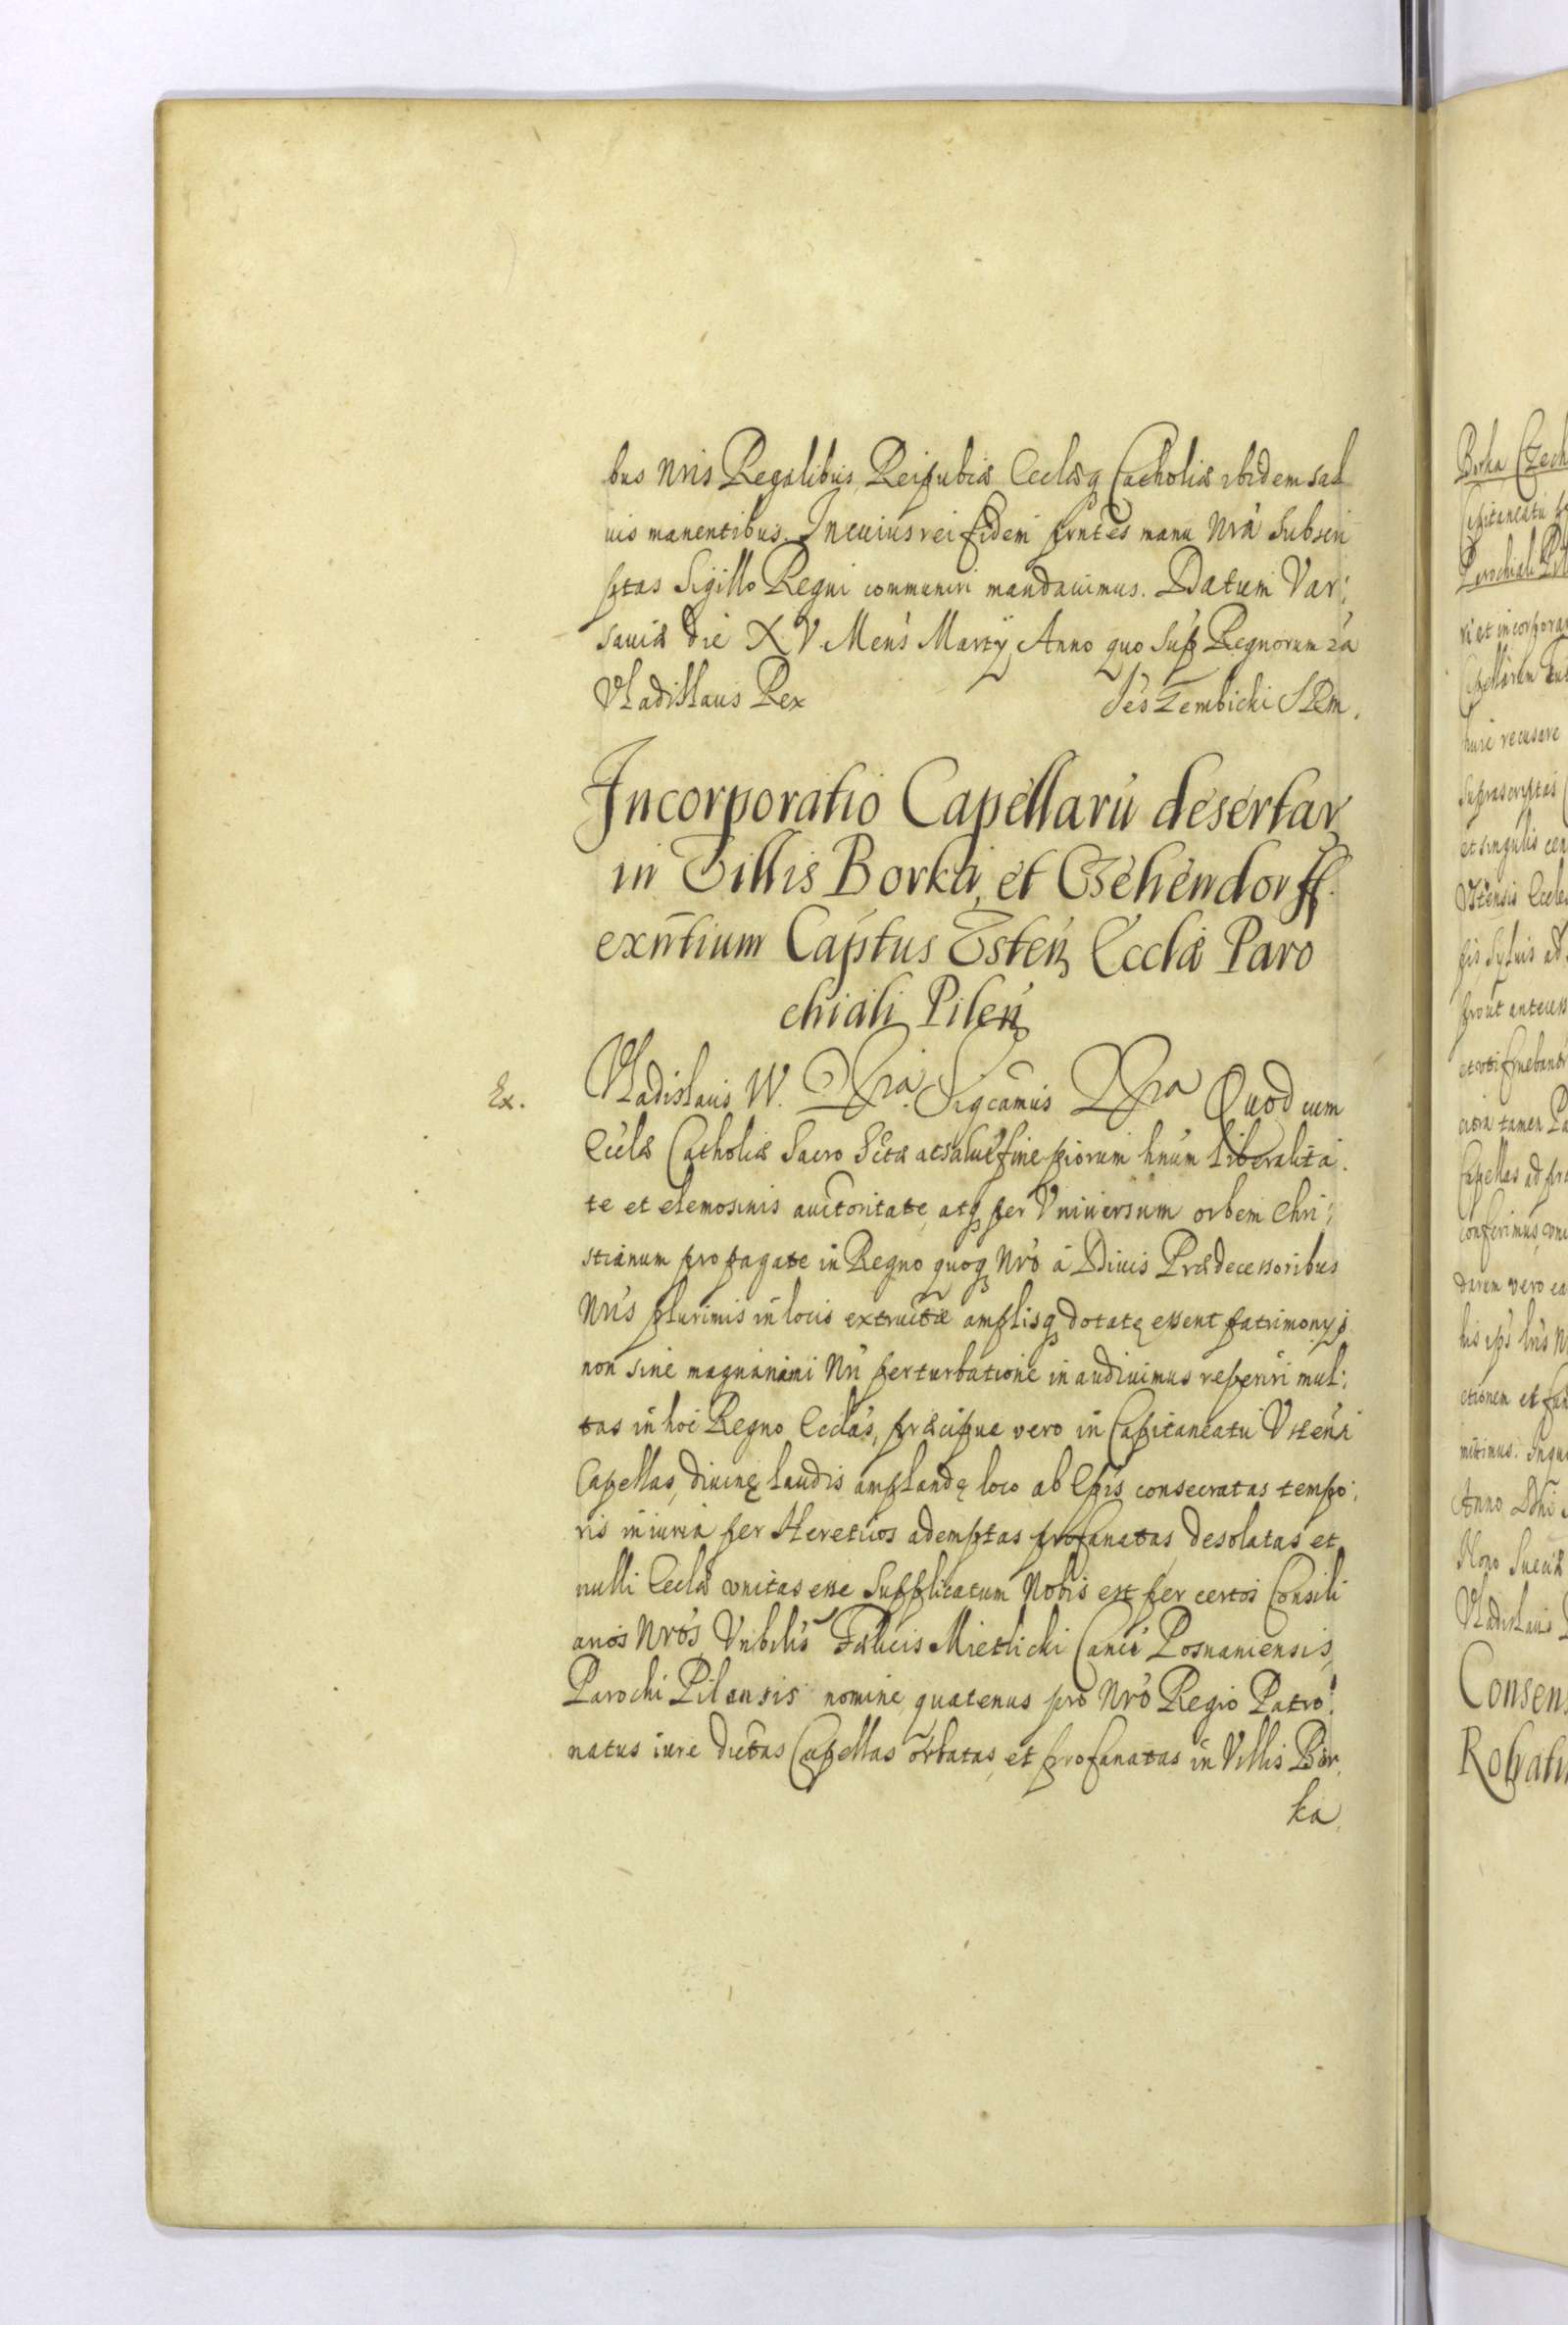 bus Nris Regalibus, Reipubcæ Ecclæq Catholicæ ibidem sal
uis manentibus. In cuius rei fidem pntes manu Nrâ subscri
ptas Sigillo Regni communiri mandauimus. Datum Var:
sauiæ die XV Mens Martÿ Anno quo sup Regnorum
Vladislaus Rex
Zembicki
Incorporatio Capellarū desertar
in Villis Borka, et Czehendorff.
exn̄tium Captus Vsten Ecclæ Paro
chiali Pilen
Ex.
Vladislaus IV. Sigcamus Quod cum
Ecclæ Catholicæ Sacro piorum hnum liberalita
te et elemosinis auctoritate, atq per Vniuersum orbem Chri:
stianum propagatæ in Regno quoq Nro à Diuis Prædecessoribus
Nris plurimis in locis extructæ amplisq dotatę essent patrimonys
non sine magna animi Nri perturbatione inaudiuimus reperiri mul:
tas in hoc Regno Ecclas, præcipue vero in Capitaneatu Vstensi
Capellas, diuinę laudis amplandę loco ab Epis consecratas tempo:
ris iniuria per Hereticos ademptas profanatas, desolatas et
nulli Ecclæ vnitas esse Supplicatum Nobis est per certos Consili
arios Nros, Vnbilis Fælicis Mietlicki Canci Posnaniensis,
Parochi Pilensis nomine, quatenus pro Nro Regio Patro:
natus iure dictas Capellas orbatas, et profanatas in Villis Bor
ka
Borka Czech
Capitaneatu
Parochiali Pil
ri et incorpora
Capellarum
recusare
suprascriptas
et singulis
Vstensis Eccle
Syluis ad
prout
tamen Pa
Capellas ad
conferimus
darem vero ea
ctionem et
Anno Dni
Nono Sueciæ
Vladislaus
Consens